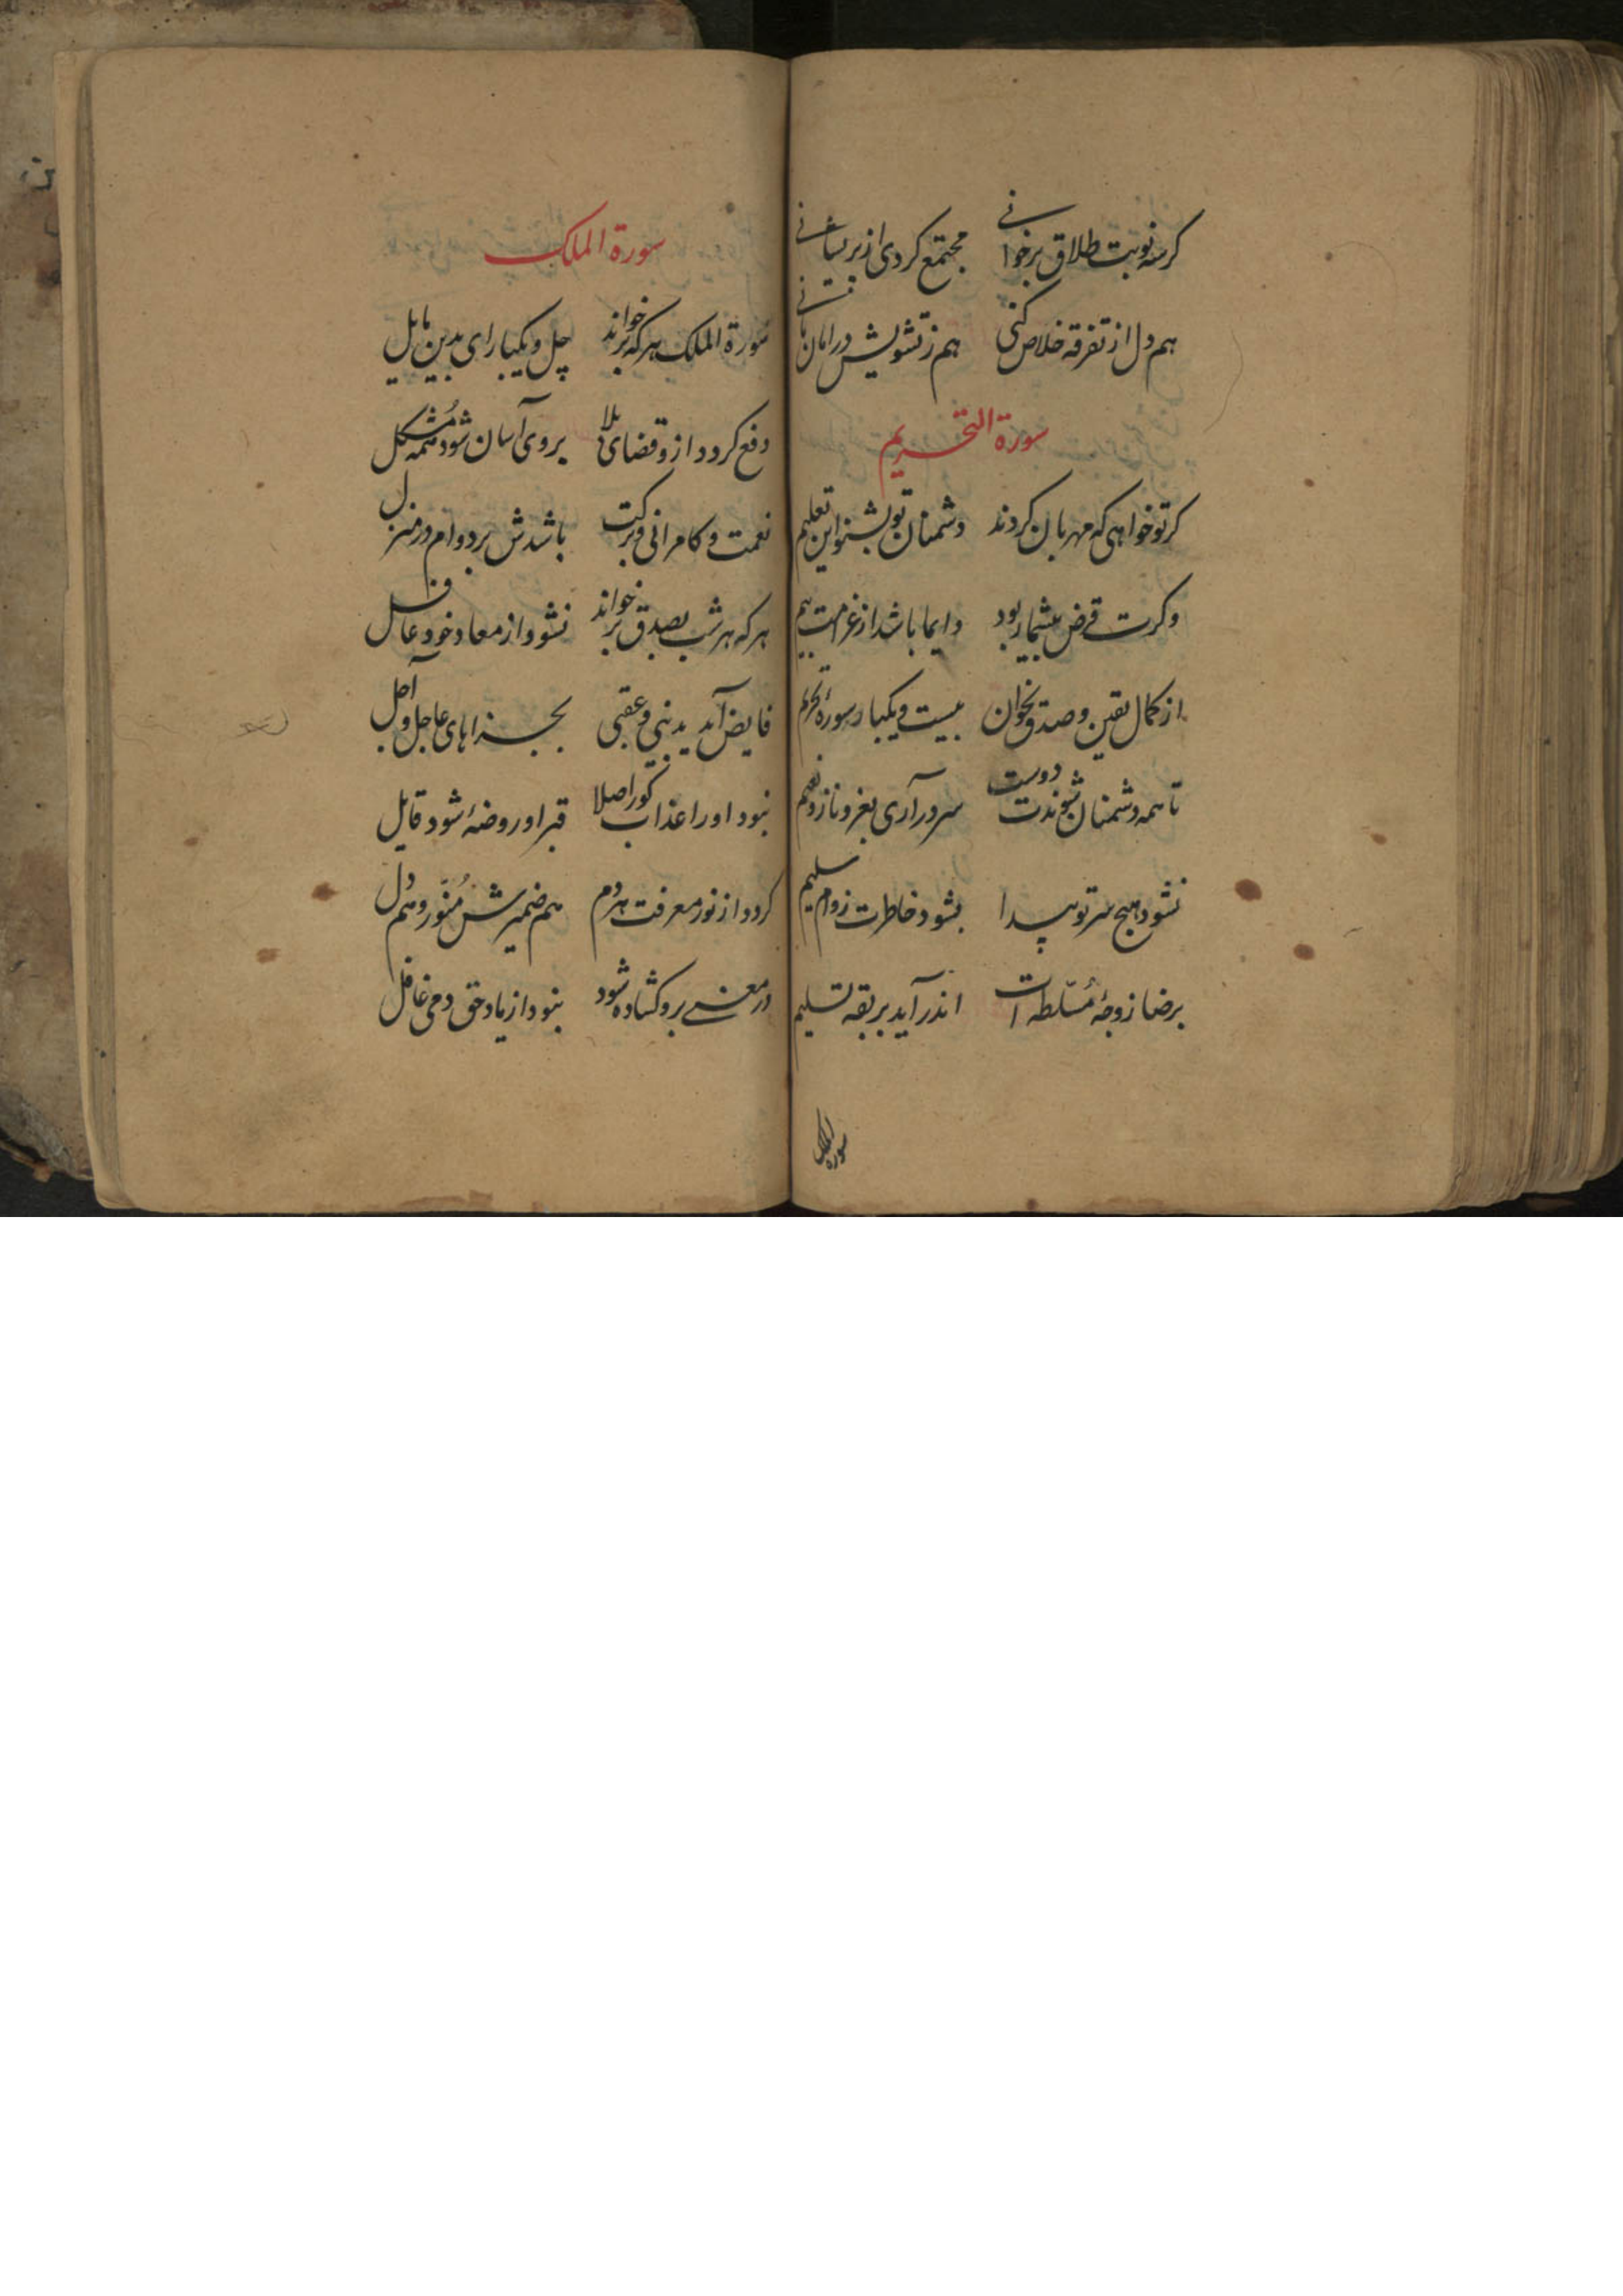 کر سه نوبت طلاق برخوانی مجتمع کردی از پریشانی
هم دل از تفرقه خلاص کنی هم ز تشویش در امان مانی
سورة التحریم
کر تو خواهی که مهربان کردند دشمنان تو بشنو این تعلیم
وکرت قرض بیشمار بود دایما باشد از غرامت بیم
از کمال یقین و صدق بخوان بیست و یکبار سورهٔ تحریم
تا همه دشمنان شوندت دوست سر در آری بعز و ناز و نعیم
نشود هیچ سر تو پیدا بشود خاطرت ز وام سلیم
برضا زوجهٔ مُسَلّطه ات اندر آید بربقه تسلیم
سوره الملک
سورة الملک
سورة الملک هر که برخواند چل و یکبار ای بدین مایل
دفع کردد ازو قضای بلا بروی آسان شود همه مُشکل
نعمت و کامرانی و برکت باشدش بر دوام در منزل
هر که هر شب بصدق برخواند نشود از معاد خود غافل
فایض آید بدنیی و عقبی بجزاهای عاجل و آجل
نبود اورا عذاب کور اصلا قبر او روضهٔ شود قابل
کردد از نور معرفت هر دم هم ضمیرش مُنوّر و هم دل
در معنی برو کشاده شود نبود از یاد حق دمی غافل